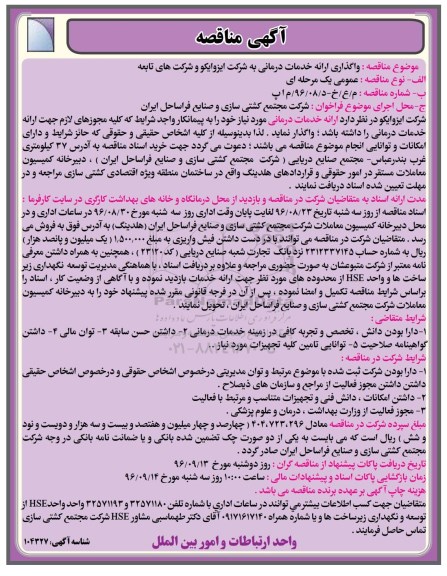 آگهی مناقصه
موضوع مناقصه : واگذاری ارائه خدمات درمانی به شرکت ایزوایکو و شرکت های تابعه
الف- نوع مناقصه : عمومی یک مرحله ای
ب- شماره مناقصه : م/ع/خ-د/۹۶/۰۸م ا پ
ج- محل اجرای موضوع فراخوان : شرکت مجتمع کشتی سازی و صنایع فراساحل ایران
شرکت ایزوایکو در نظر دارد ارائه خدمات درمانی مورد نیاز خود را به پیمانکار واجد شرایط که کلیه مجوزهای لازم جهت ارائه
خدمات درمانی را داشته باشد ؛ واگذار نماید . لذا بدینوسیله از کلیه اشخاص حقیقی و حقوقی که حائز شرایط و دارای
امکانات و توانایی انجام موضوع مناقصه می باشند ؛ دعوت می گردد جهت خرید اسناد مناقصه به آدرس ۳۷ کیلومتری
غرب بندرعباس- مجتمع صنایع دریایی ( شرکت مجتمع کشتی سازی و صنایع فراساحل ایران ) ، دبیرخانه کمیسیون
معاملات مستقر در امور حقوقی و قراردادهای هلدینگ واقع در ساختمان منطقه ویژه اقتصادی کشتی سازی مراجعه و در
مهلت تعیین شده اسناد دریافت نمایند .
مدت ارائه اسناد به متقاضیان شرکت در مناقصه و بازدید از محل درمانگاه و خانه های بهداشت کارگری در سایت کارفرما :
اسناد مناقصه از روز سه شنبه تاریخ ۹۶/۰۸/۲۳ لغایت پایان وقت اداری روز سه شنبه مورخ ۹۶/۰۸/۳۰ در ساعات اداری و در
محل دبیرخانه کمیسیون معاملات شرکت مجتمع کشتی سازی و صنایع فراساحل ایران (هلدینگ) به آدرس فوق به فروش می
رسد . متقاضیان شرکت در مناقصه می توانند با در دست داشتن فیش واریزی به مبلغ ۱,۵۰۰,۰۰۰ ( یک میلیون و پانصد هزار )
ریال به شماره حساب ۲۳۱۲۳۳۷۱۴۵ نزد بانک تجارت شعبه صنایع دریایی ( کد ۲۳۱۲۰ ) ، همچنین به همراه داشتن معرفی
نامه معتبر از شرکت متبوعشان به صورت حضوری مراجعه و علاوه بر دریافت اسناد ، با هماهنگی مدیریت توسعه نگهداری زیر
ساخت ها و واحد HSE از محدوده های مورد نظر جهت ارائه خدمات بازدید نموده و با آگاهی از وضعیت کار ، اسناد را
براساس شرایط مناقصه تکمیل و امضا نموده ، پس از آن در فرجه قانونی مقرر شده پیشنهاد خود را به دبیرخانه کمیسیون
معاملات شرکت مجتمع کشتی سازی و صنایع فراساحل ایران ، تحویل نمایند .
شرایط متقاضی :
۱- دارا بودن دانش ، تخصص و تجربه کافی در زمینه خدمات درمانی ۲- داشتن حسن سابقه ۳- توان مالی ۴- داشتن
گواهینامه صلاحیت ۵- توانایی تامین کلیه تجهیزات مورد نیاز
شرایط شرکت در مناقصه :
۱- دارا بودن شرکت ثبت شده با موضوع مرتبط و توان مدیریتی درخصوص اشخاص حقوقی و درخصوص اشخاص حقیقی
داشتن داشتن مجوز فعالیت از مراجع و سازمان های ذیصلاح .
۲- داشتن امکانات ، دانش فنی و تجهیزات متناسب و مرتبط با فعالیت
۳- مجوز فعالیت از وزارت بهداشت ، درمان و علوم پزشکی .
مبلغ سپرده شرکت در مناقصه معادل ۴۰۴,۷۲۳,۲۹۶ ( چهارصد و چهار میلیون و هفتصد و بیست و سه هزار و دویست و نود
و شش ) ریال است که می بایست به یکی از دو صورت چک تضمین شده بانکی و یا ضمانت نامه بانکی در وجه شرکت
مجتمع کشتی سازی و صنایع فراساحل ایران صادر گردد .
تاریخ دریافت پاکات پیشنهاد از مناقصه گران : روز دوشنبه مورخ ۹۶/۰۹/۱۳
زمان بازگشایی پاکات اسناد و پیشنهادات مالی : ساعت ۱۰:۰۰ روز سه شنبه مورخ ۹۶/۰۹/۱۴
هزینه چاپ آگهی بر عهده برنده مناقصه می باشد .
متقاضیان جهت کسب اطلاعات بیشتر می توانند در ساعات اداری با شماره تلفن ۳۲۵۷۱۱۸۰ و ۳۲۵۷۱۱۹۳ واحد HSE از
توسعه و نگهداری زیرساخت ها و یا شماره همراه ۰۹۱۷۱۶۱۷۱۴۰ آقای دکتر طهماسبی مشاور HSE شرکت مجتمع کشتی سازی
تماس حاصل فرمایند .
واحد ارتباطات و امور بین الملل
شناسه آگهی: ۱۰۴۳۲۷